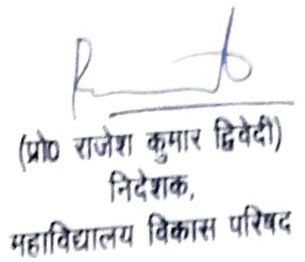 (प्रो0 राजेश कुमार द्विवेदी)
निदेशक,
महाविद्यालय विकास परिषद